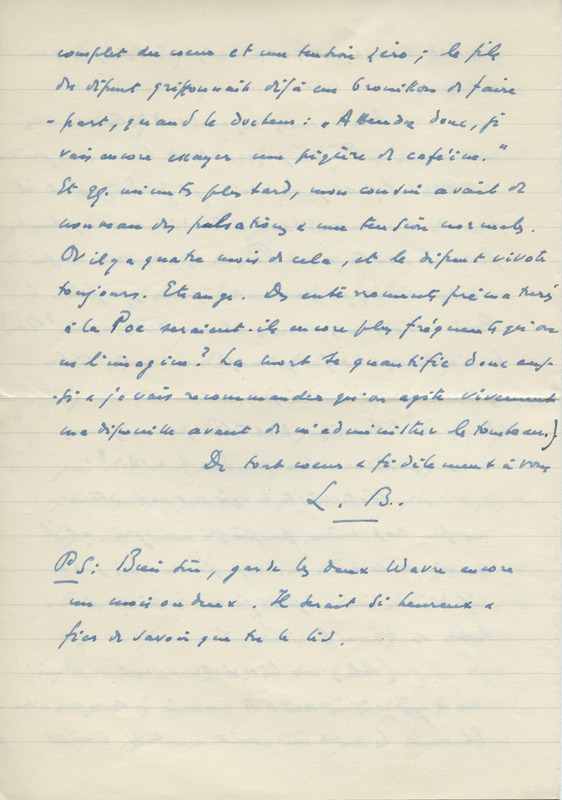 complet du coeur et une tension zéro ; le fils
du défunt griffonnait déjà un brouillon de faire
-part, quand le docteur : „Attendez donc, je
vais encore essayer une piqûre de caféine."
Et qq. minutes plus tard, mon cousin avait de
nouveau des pulsations & une tension normales.
Or il y a quatre mois de cela, et le défunt vivote
toujours. Etrange. Des enterrements prématurés
à la Poe seraient-ils encore plus fréquents qu'on
ne l'imagine? La mort se quantifie donc aus-
-si & je vais recommander qu'on agite vivement
ma dépouille avant de m'administrer le tombeau.)
De tout coeur & fidèlement à vous
L. B..
PS: Bien sûr, garde les deux Wavre encore
un mois ou deux. Il serait si heureux &
fier de savoir que tu le lis.